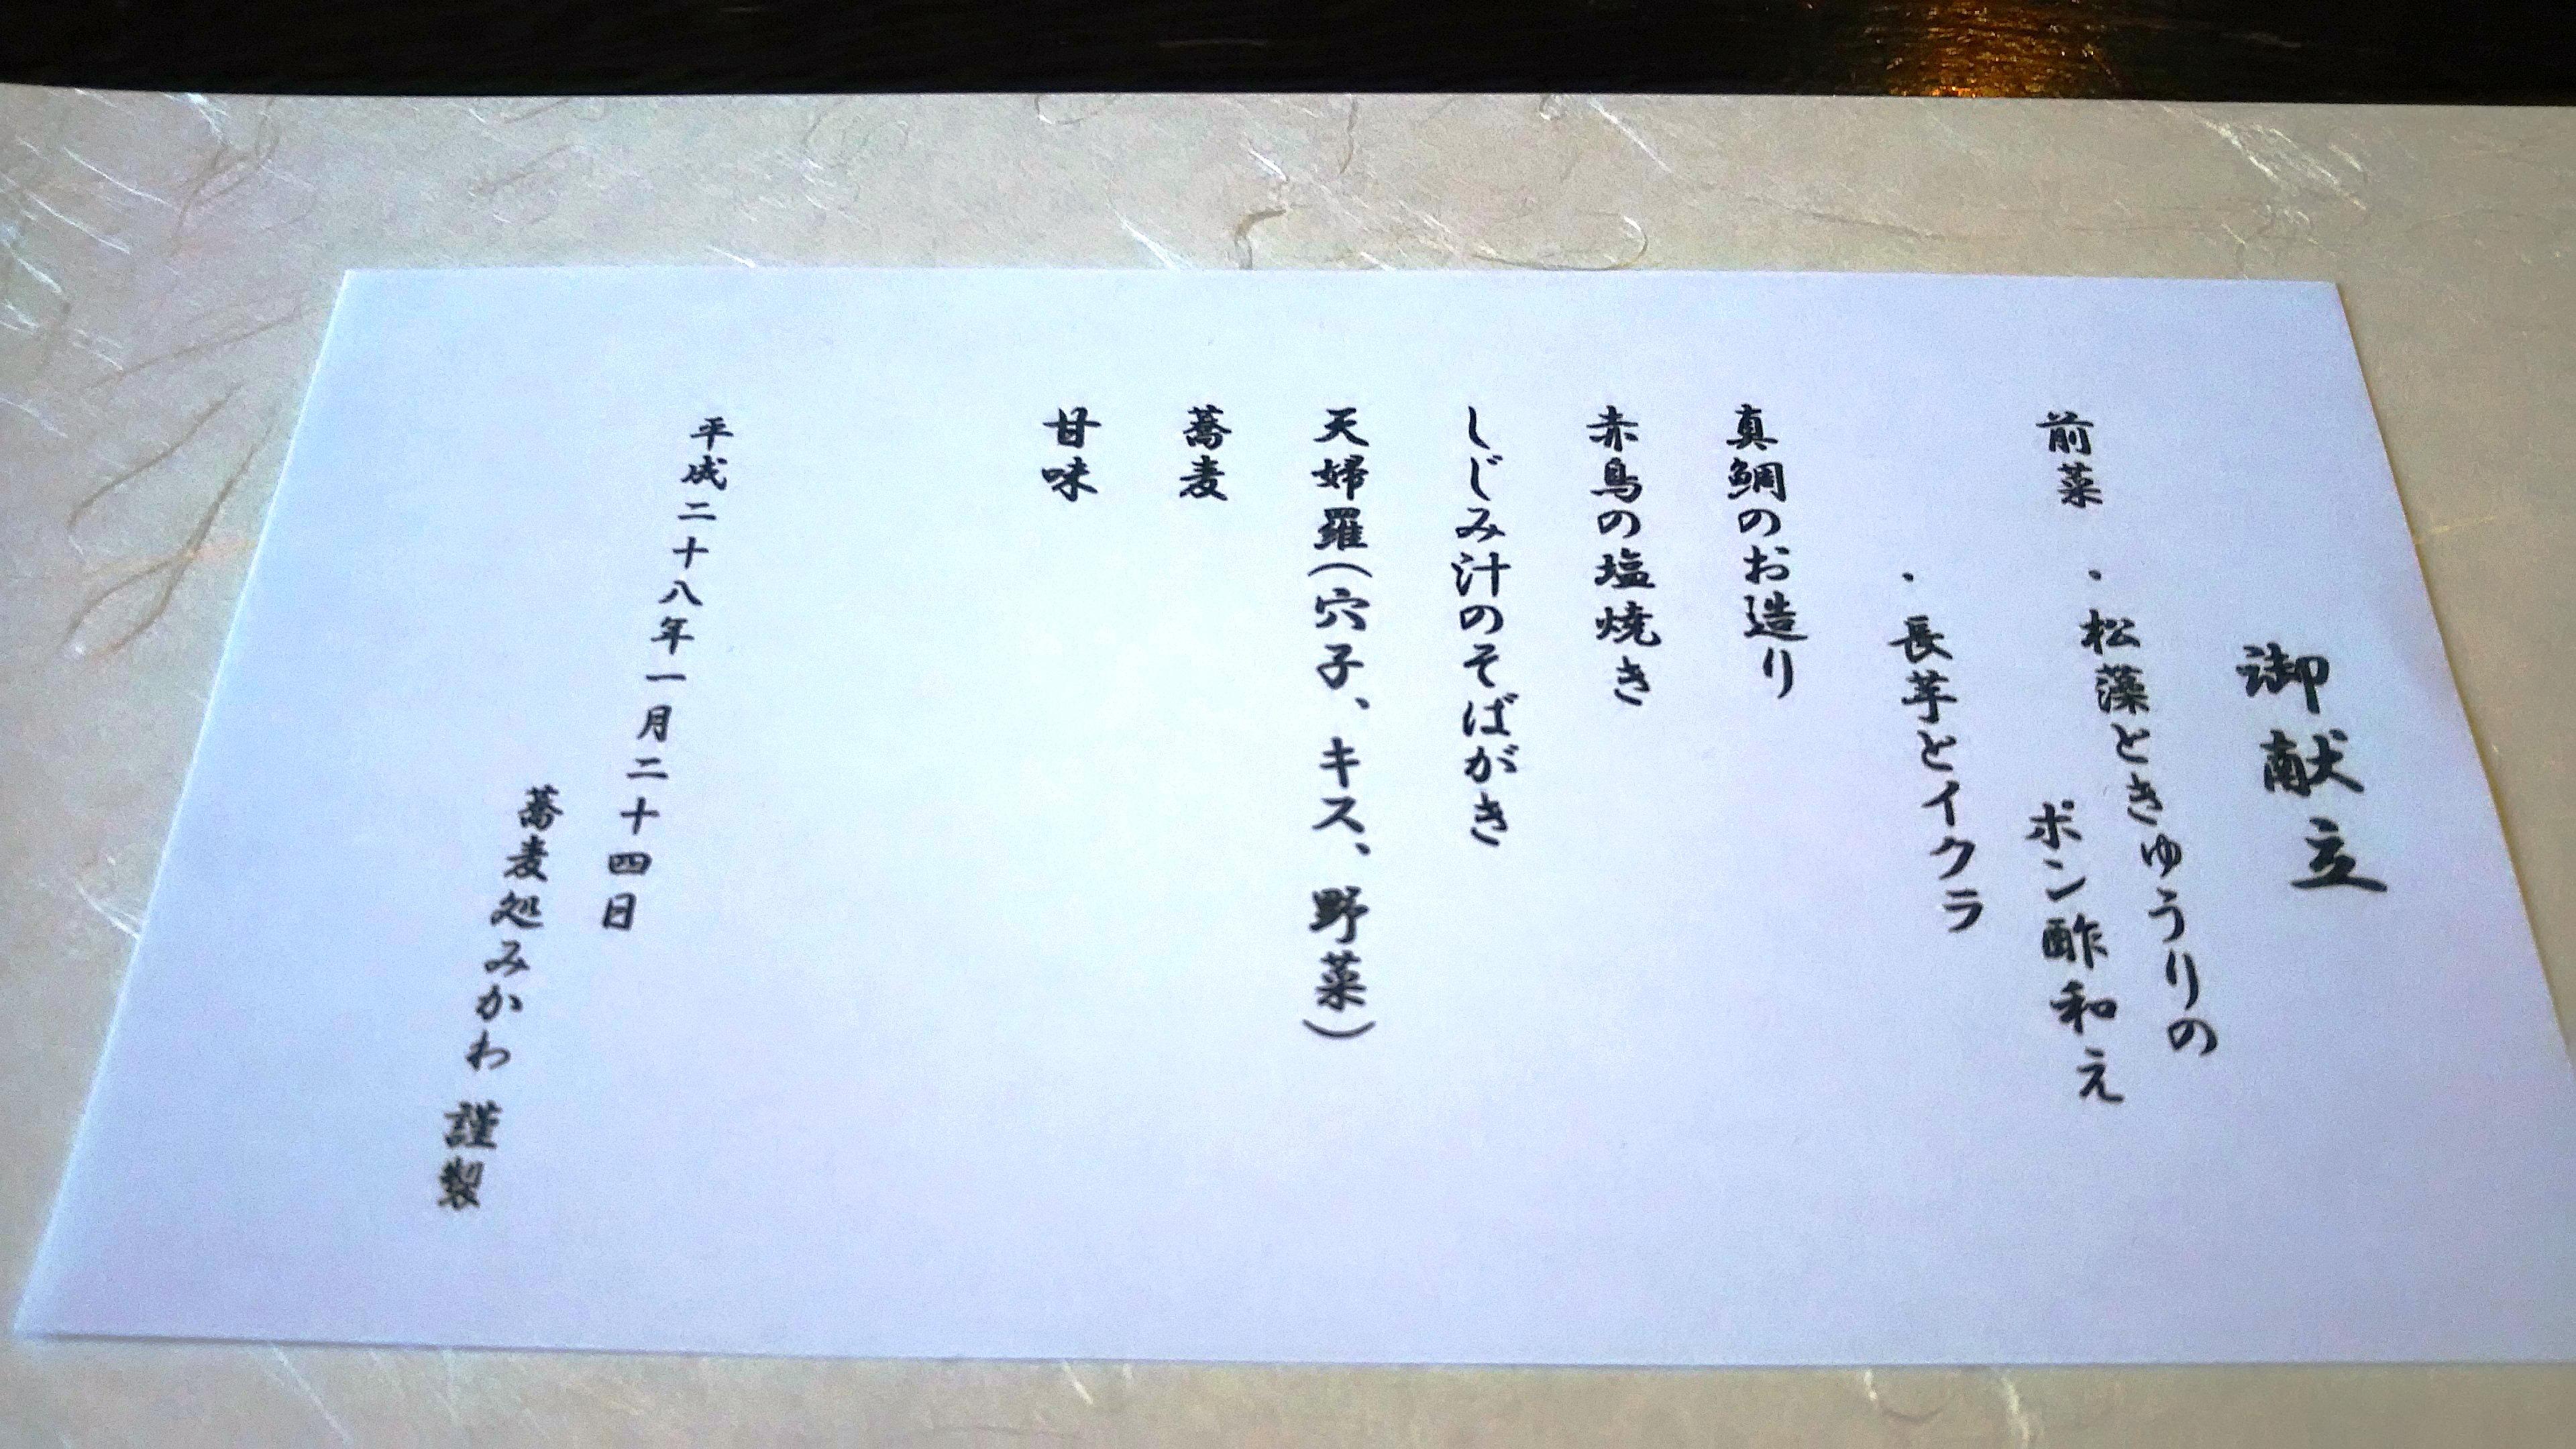 御献立
前菜 ・松藻ときゅうりの
ポン酢和え
・長芋とイクラ
真鯛のお造り
赤鳥の塩焼き
しじみ汁のそばがき
天婦羅(穴子、キス、野菜)
蕎麦
甘味
平成二十八年一月二十四日
蕎麦処みかわ 謹製